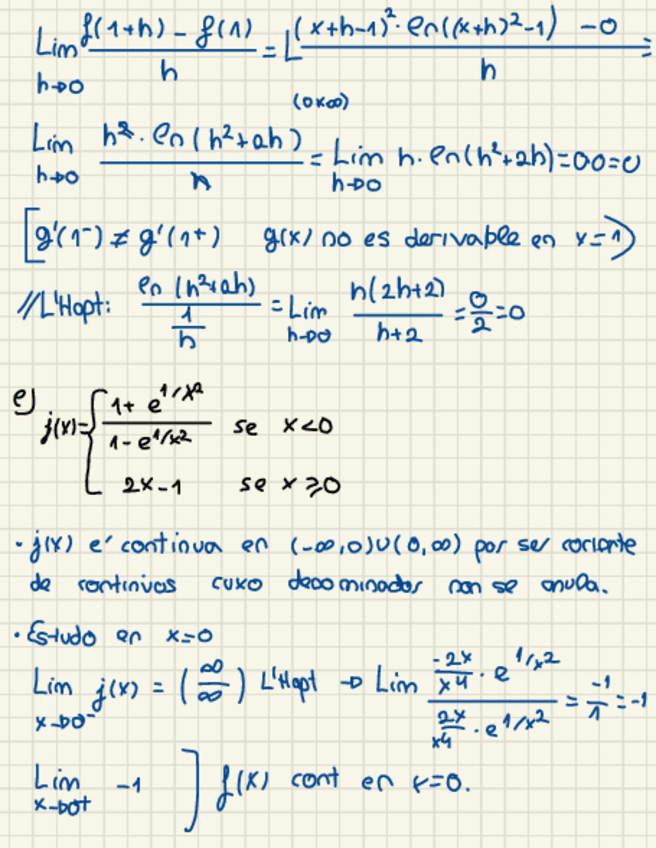 Lim h→0 (f(1+h) - f(1))/h = L ((x+h-1)²·ln((x+h)²-1) - 0)/h =
(0×∞)
Lim h→0 (h²·ln(h²+2h))/h = Lim h→0 h·ln(h²+2h) = 0·0 = 0
[g'(1⁻) ≠ g'(1⁺) g(x) no es derivable en x=1)
//L'Hopt: ln(h²+2h)/(1/h) = Lim h→0 h(2h+2)/(h+2) = 0/2 = 0
e) j(x) = { (1+e^1/x²)/(1-e^1/x²) se x<0
2x-1 se x⩾0
· j(x) é continua en (-∞,0)∪(0,∞) por ser cociente
de continuas cuxo denominador non se anula.
· Estudo en x=0
Lim x→0⁻ j(x) = (∞/∞) L'Hopt → Lim (-2x/x⁴ · e^1/x²)/(2x/x⁴ · e^1/x²) = -1/1 = -1
Lim x→0⁺ -1 ] f(x) cont en x=0.